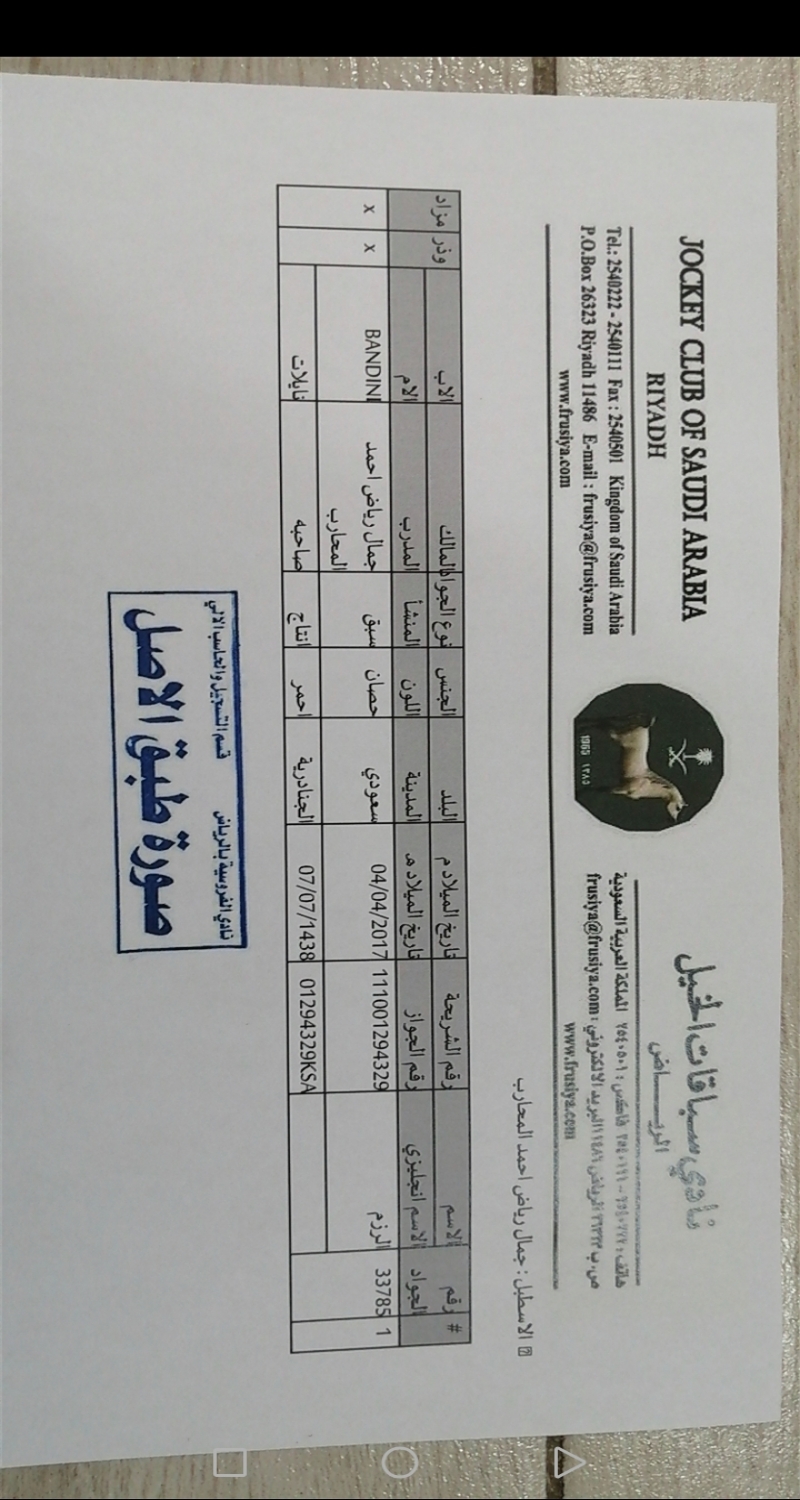 JOCKEY CLUB OF SAUDI ARABIA
RIYADH
Tel.: 2540222 - 2540111 Fax : 2540501 Kingdom of Saudi Arabia
P.O.Box 26323 Riyadh 11486 E-mail : frusiya@frusiya.com
www.frusiya.com
1965 ١٣٨٥
نادي سباقات الخيل
الريـــاض
هاتف: ٢٥٤٠٢٢٢ – ٢٥٤٠١١١ فاكس : ٢٥٤٠٥٠١ المملكة العربية السعودية
ص.ب ٢٦٣٢٣ الرياض ١١٤٨٦ البريد الالكتروني : frusiya@frusiya.com
www.frusiya.com
الاسطبل : جمال رياض احمد المحارب
# رقم الاسم رقم الشريحة تاريخ الميلاد م البلد الجنس نوع الجواد المالك الاب وذر مزاد
الجواد الاسم انجليزي رقم الجواز تاريخ الميلاد هـ المدينة اللون المنشأ المدرب الام
1 33785 الرزم 111001294329 04/04/2017 سعودي حصان سبق جمال رياض احمد BANDINI x x
المحارب
01294329KSA 07/07/1438 الجنادرية احمر انتاج صاحبه نايلات
نادي الفروسية بالرياض قسم التسجيل والحاسب الآلي
صورة طبق الاصل